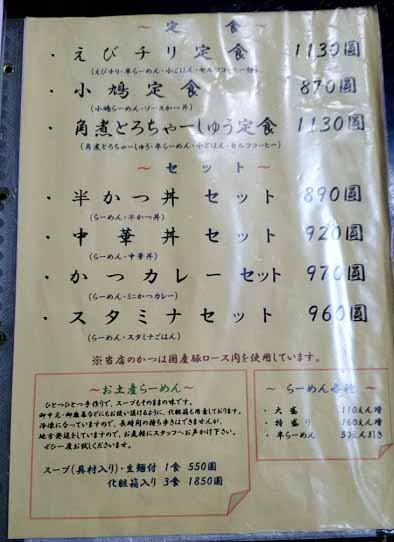 ～定食～
・えびチリ定食 1130圓
(えびチリ・半らーめん・小ごはん・セルフコーヒー付)
・小鳩定食 870圓
(小鳩らーめん・ソースかつ丼)
・角煮とろちゃーしゅう定食 1130圓
(角煮とろちゃーしゅう・半らーめん・小ごはん・セルフコーヒー)
～セット～
・半かつ丼 セット 890圓
(らーめん・半かつ丼)
・中華丼 セット 920圓
(らーめん・中華丼)
・かつカレーセット 970圓
(らーめん・ミニかつカレー)
・スタミナセット 960圓
(らーめん・スタミナごはん)
※当店のかつは国産豚ロース肉を使用しています。
～お土産らーめん～
ひとつひとつ手作りで、スープもそのままの味です。
御中元・御歳暮などにもお使い頂けるように、化粧箱も用意しております。
冷凍になっていますので、長時間の持ち歩きはできませんが、
地方発送をしていますので、お気軽にスタッフへお声かけ下さい。
ぜひ一度お試しくださいませ。
スープ(具材入り)・生麺付 1食 550圓
化粧箱入り 3食 1850圓
～らーめん
・大盛 110えん増
・特盛り 160えん増
・半らーめん 50えん引き